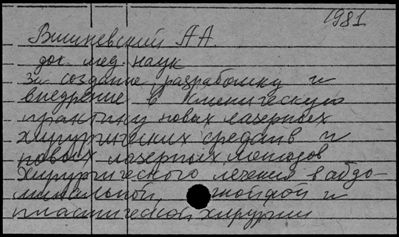 1981
Вишневский А А.
док. мед. наук
За создание, разработку и
внедрение в клиническую
практику новых лазерных
хирургических средств и
новых лазерных методов
хирургического лечения в абдо-
минальной, гнойной и
пластической хирургии